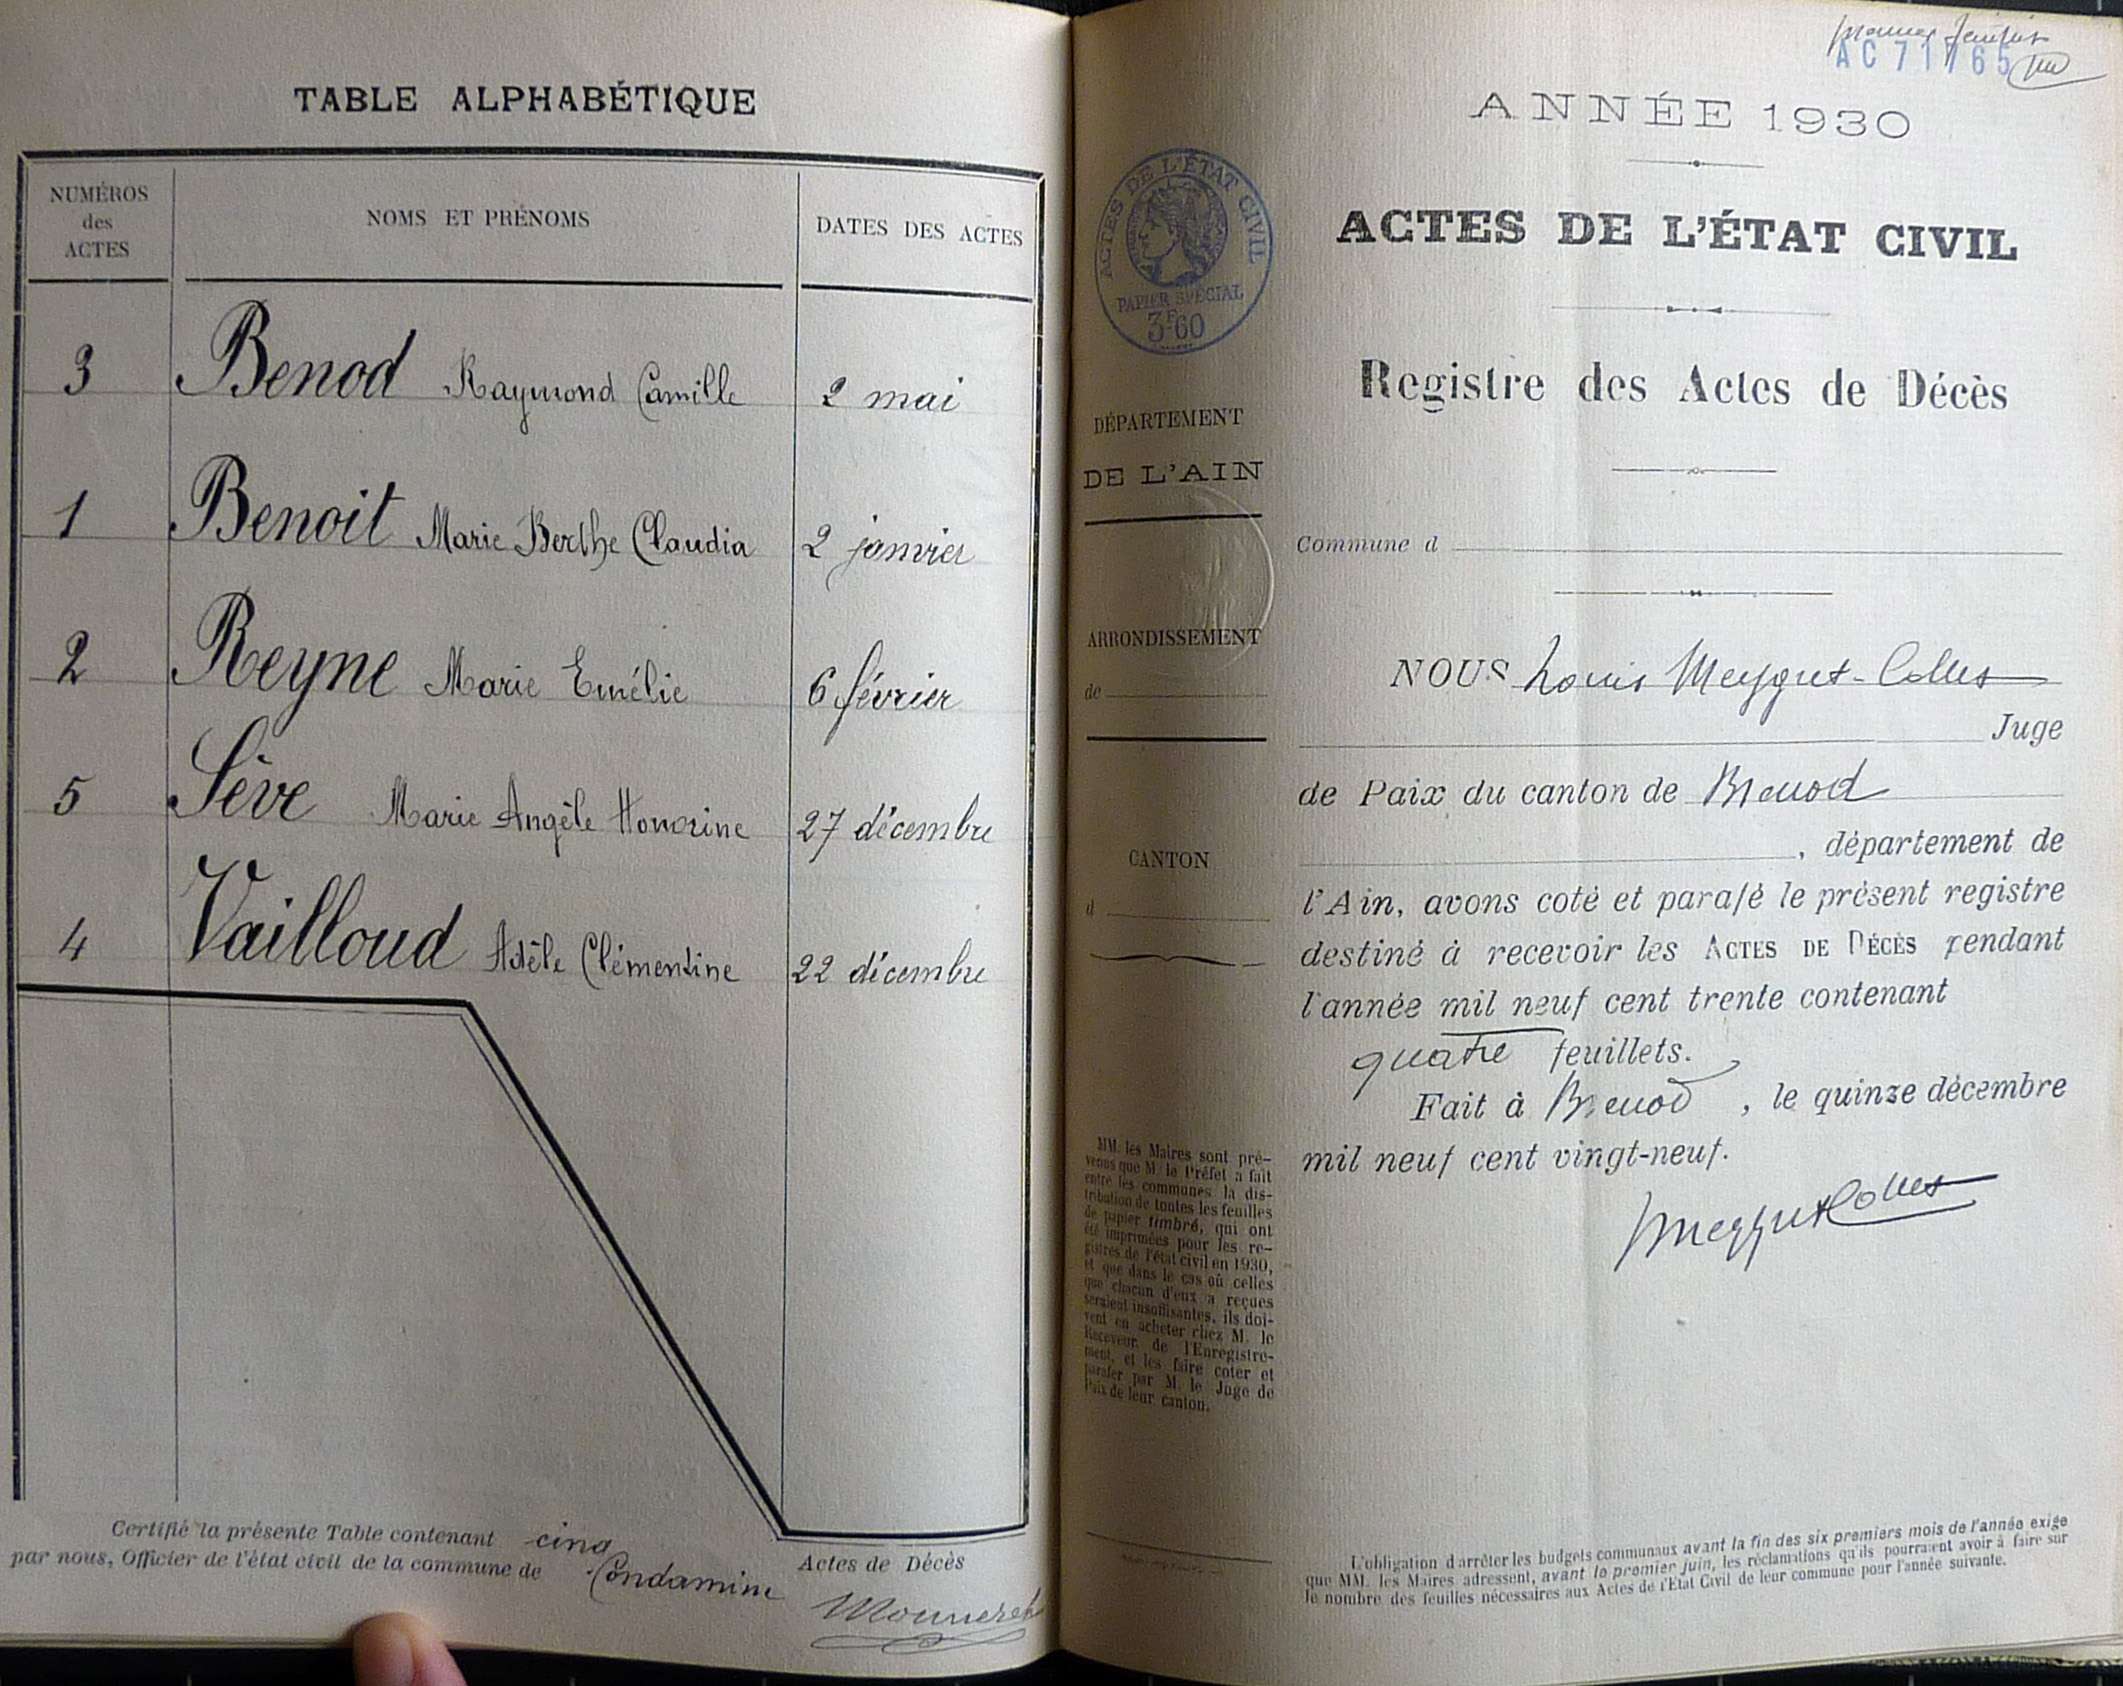 TABLE ALPHABÉTIQUE
NUMÉROS
des
ACTES
NOMS ET PRÉNOMS
DATES DES ACTES
3 Benod Raymond Camille 2 mai
1 Benoit Marie Berthe Claudia 2 janvier
2 Reyne Marie Emélie 6 février
5 Sève Marie Angèle Honorine 27 décembre
4 Vailloud Adèle Clémentine 22 décembre
Certifié la présente Table contenant cinq Actes de Décès
par nous, Officier de l'état civil de la commune de Condamine
Monneret
AC 71765
ANNÉE 1930
ACTES DE L'ÉTAT CIVIL
PAPIER SPÉCIAL
3F60
ACTES DE L'ÉTAT CIVIL
Registre des Actes de Décès
DÉPARTEMENT
DE L'AIN
Commune d
ARRONDISSEMENT
de
CANTON
d
NOUS Louis
Juge
de Paix du canton de Brenod
, département de
l'Ain, avons coté et parafé le présent registre
destiné à recevoir les ACTES DE DÉCÈS pendant
l'année mil neuf cent trente contenant
quatre feuillets.
Fait à Brenod, le quinze décembre
mil neuf cent vingt-neuf.
MM. les Maires sont pré-
venus que M. le Préfet a fait
entre les communes la dis-
tribution de toutes les feuilles
de papier timbré, qui ont
été imprimées pour les re-
gistres de l'état civil en 1930,
et que dans le cas où celles
que chacun d'eux a reçues
seraient insuffisantes, ils doi-
vent en acheter chez M. le
Receveur de l'Enregistre-
ment, et les faire coter et
parafer par M. le Juge de
Paix de leur canton.
L'obligation d'arrêter les budgets communaux avant la fin des six premiers mois de l'année exige
que MM. les Maires adressent, avant le premier juin, les réclamations qu'ils pourraient avoir à faire sur
le nombre des feuilles nécessaires aux Actes de l'État Civil de leur commune pour l'année suivante.